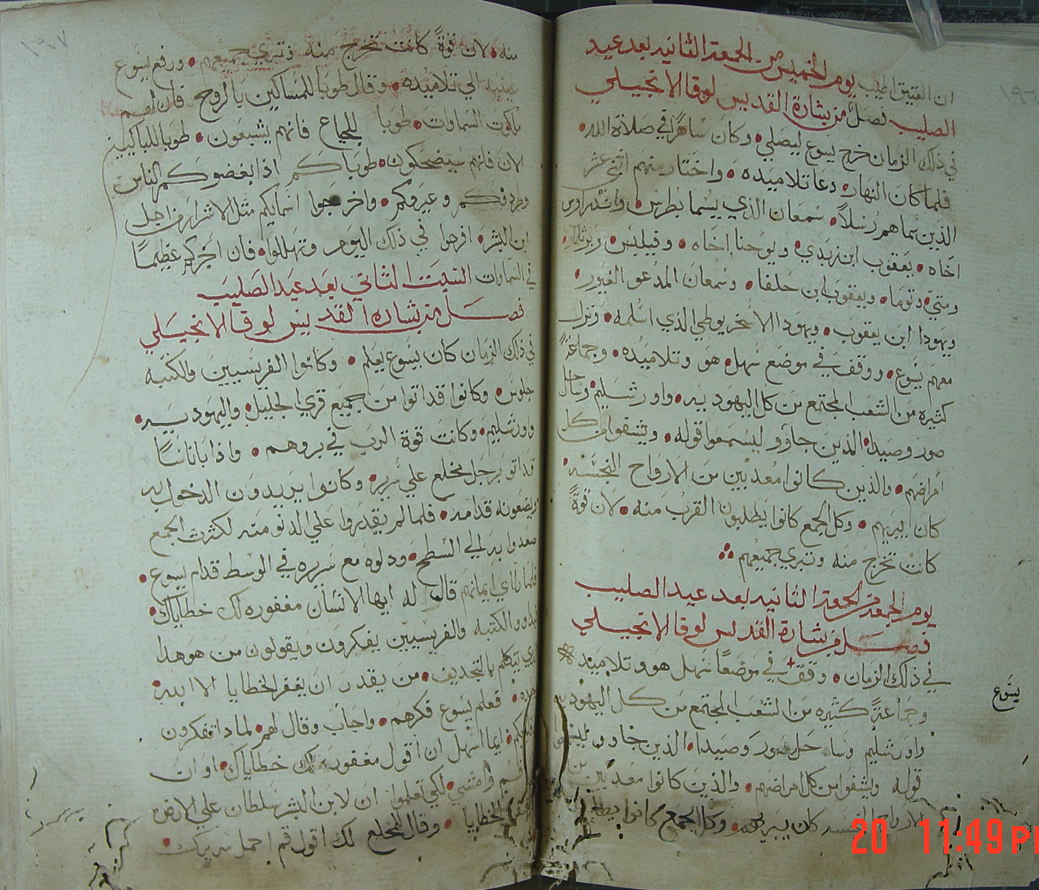 ١٩٦
ان العتيق اطيب يوم الخميس من الجمعة الثانيه بعد عيد
الصليب فصل من بشارة القديس لوقا الانجيلي
في ذلك الزمان خرج يسوع ليصلي وكان ساهرًا في صلاة الله
فلما كان النهار دعا تلاميذه واختار منهم اثني عشر
الذين سماهم رسلاً سمعان الذي يسما بطرس واندراوس
اخاه يعقوب ابن زبدي ويوحنا اخاه وفيلبس
ومتي وتوما ويعقوب ابن حلفا وسمعان المدعو الغيور
ويهودا ابن يعقوب ويهودا الاسخريوطي الذي اسلمه ونزل
معهم يسوع ووقف في موضع سهل هو وتلاميذه وجماعةً
كثيره من الشعب المجتمع من كل اليهوديه واورشليم وساحل
صور وصيدا الذين جاوو ليسمعوا قوله ويشفوا من كل
امراضهم والذين كانوا معذبين من الارواح النجسه
كان يبريهم وكل الجمع كانوا يطلبون القرب منه لان قوةً
كانت تخرج منه وتبري جميعهم
يوم الجمعة من الجمعة الثانيه بعد عيد الصليب
فصل من بشارة القديس لوقا الانجيلي
في ذلك الزمان وقف في موضعًا سهل هو وتلاميذه
يسوع
وجماعةً كثيره من الشعب المجتمع من كل اليهوديه
واورشليم وساحل صور وصيدا الذين جاوو
قوله ويشفوا من كل امراضهم والذين كانوا معذبين
كان يبريهم وكل الجمع كانوا
١٩٧
منه لان قوةً كانت تخرج منه وتبري جميعهم ورفع يسوع
عينيه الي تلاميذه وقال طوبا للمساكين بالروح فان لهم
ملكوت السماوات طوبا للجياع فانهم يشبعون طوبا للباكين
الان فانهم سيضحكون طوباكم اذا ابغضوكم الناس
وطردوكم وعيروكم واخرجوا اسمايكم مثل الاشرار من اجل
ابن البشر افرحوا في ذلك اليوم وتهللوا فان اجركم عظيمًا
في السماوات السبت الثاني بعد عيد الصليب
فصل من بشارة القديس لوقا الانجيلي
في ذلك الزمان كان يسوع يعلم وكانوا الفريسيين والكتبه
جلوس وكانوا قد اتوا من جميع قري الجليل واليهوديه
واورشليم وكانت قوة الرب في بروهم واذا باناسًا
قد اتو برجل مخلع علي سرير وكانوا يريدون الدخول به
ويضعونه قدامه فلما لم يقدروا علي الدنو منه لكثرت الجمع
صعدوا به الي السطح ودلوه مع سريره في الوسط قدام يسوع
فلما راي ايمانهم قال له ايها الانسان مغفوره لك خطاياك
الكتبه والفريسيين يفكرون ويقولون من هو هذا
الذي يتكلم بالتجديف من يقدر ان يغفر الخطايا الا الله
وحده فعلم يسوع فكرهم واجاب وقال لهم لماذا تفكرون
ايما اسهل ان اقول مغفوره لك خطاياك او ان
قم وامشي لكي تعلموا ان لابن البشر سلطان علي الارض
الخطايا وقال للمخلع لك اقول قم احمل سريرك
20 11:49 PM